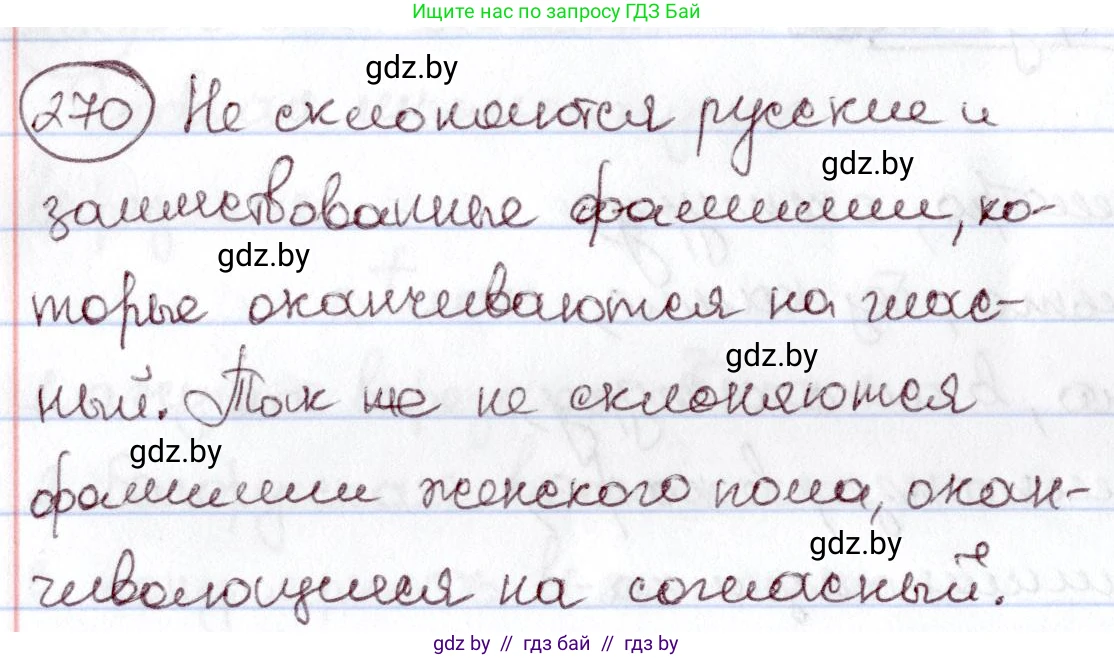 Ищите нас по запросу ГДЗ Бай
gdz.by
270 Не склоняются русские и
gdz.by
заимствованные фамилии, ко-
gdz.by
торые оканчиваются на глас-
gdz.by
ный. Так же не склоняются
gdz.by
фамилии женского пола, окан-
gdz.by
чивающиеся на согласный.
gdz.by // гдз бай // гдз by